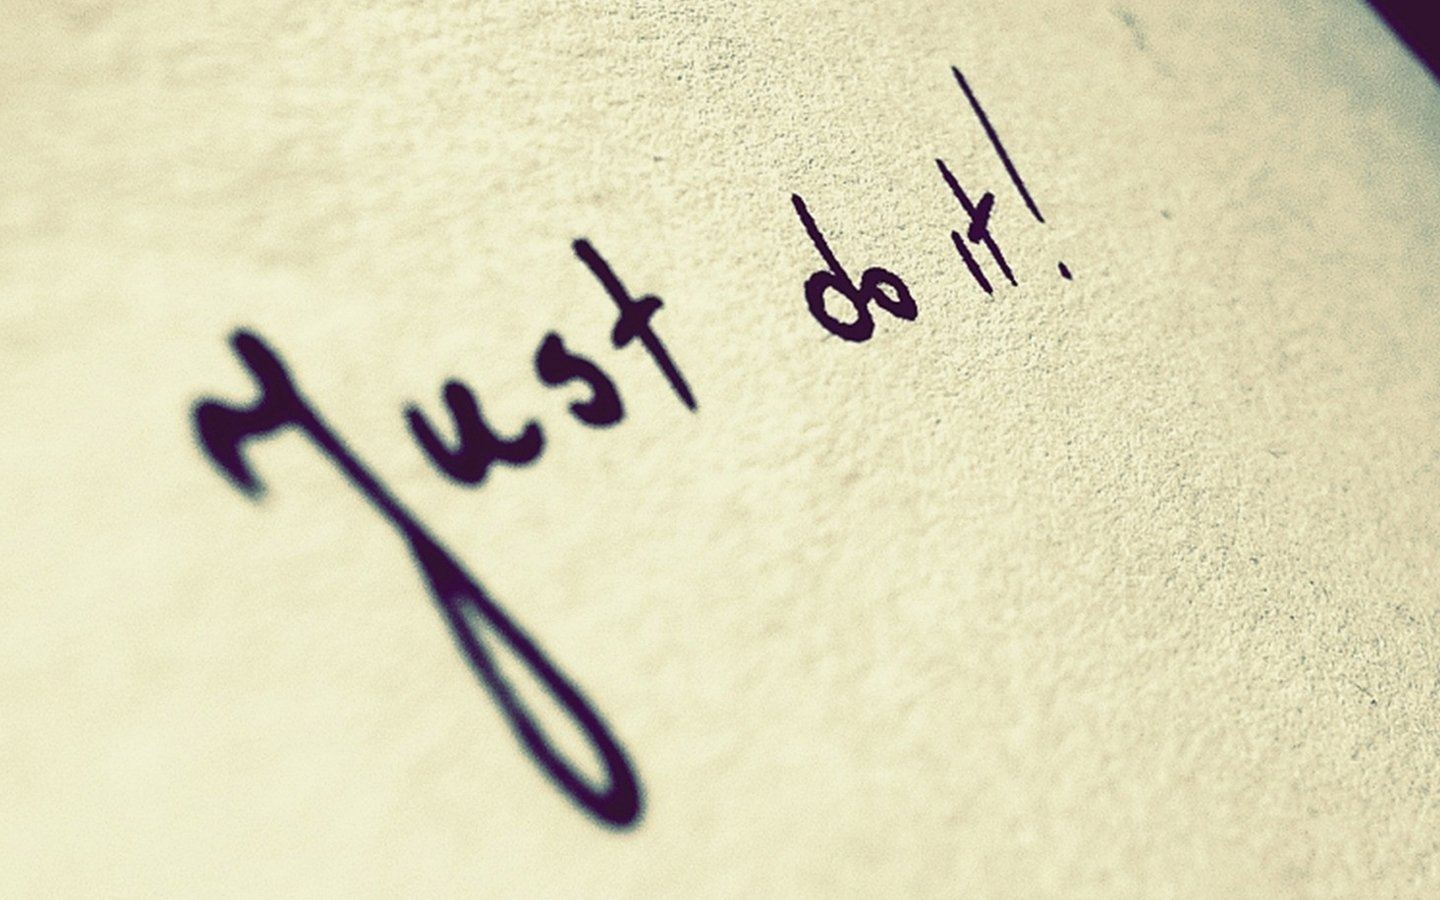 Just do it!